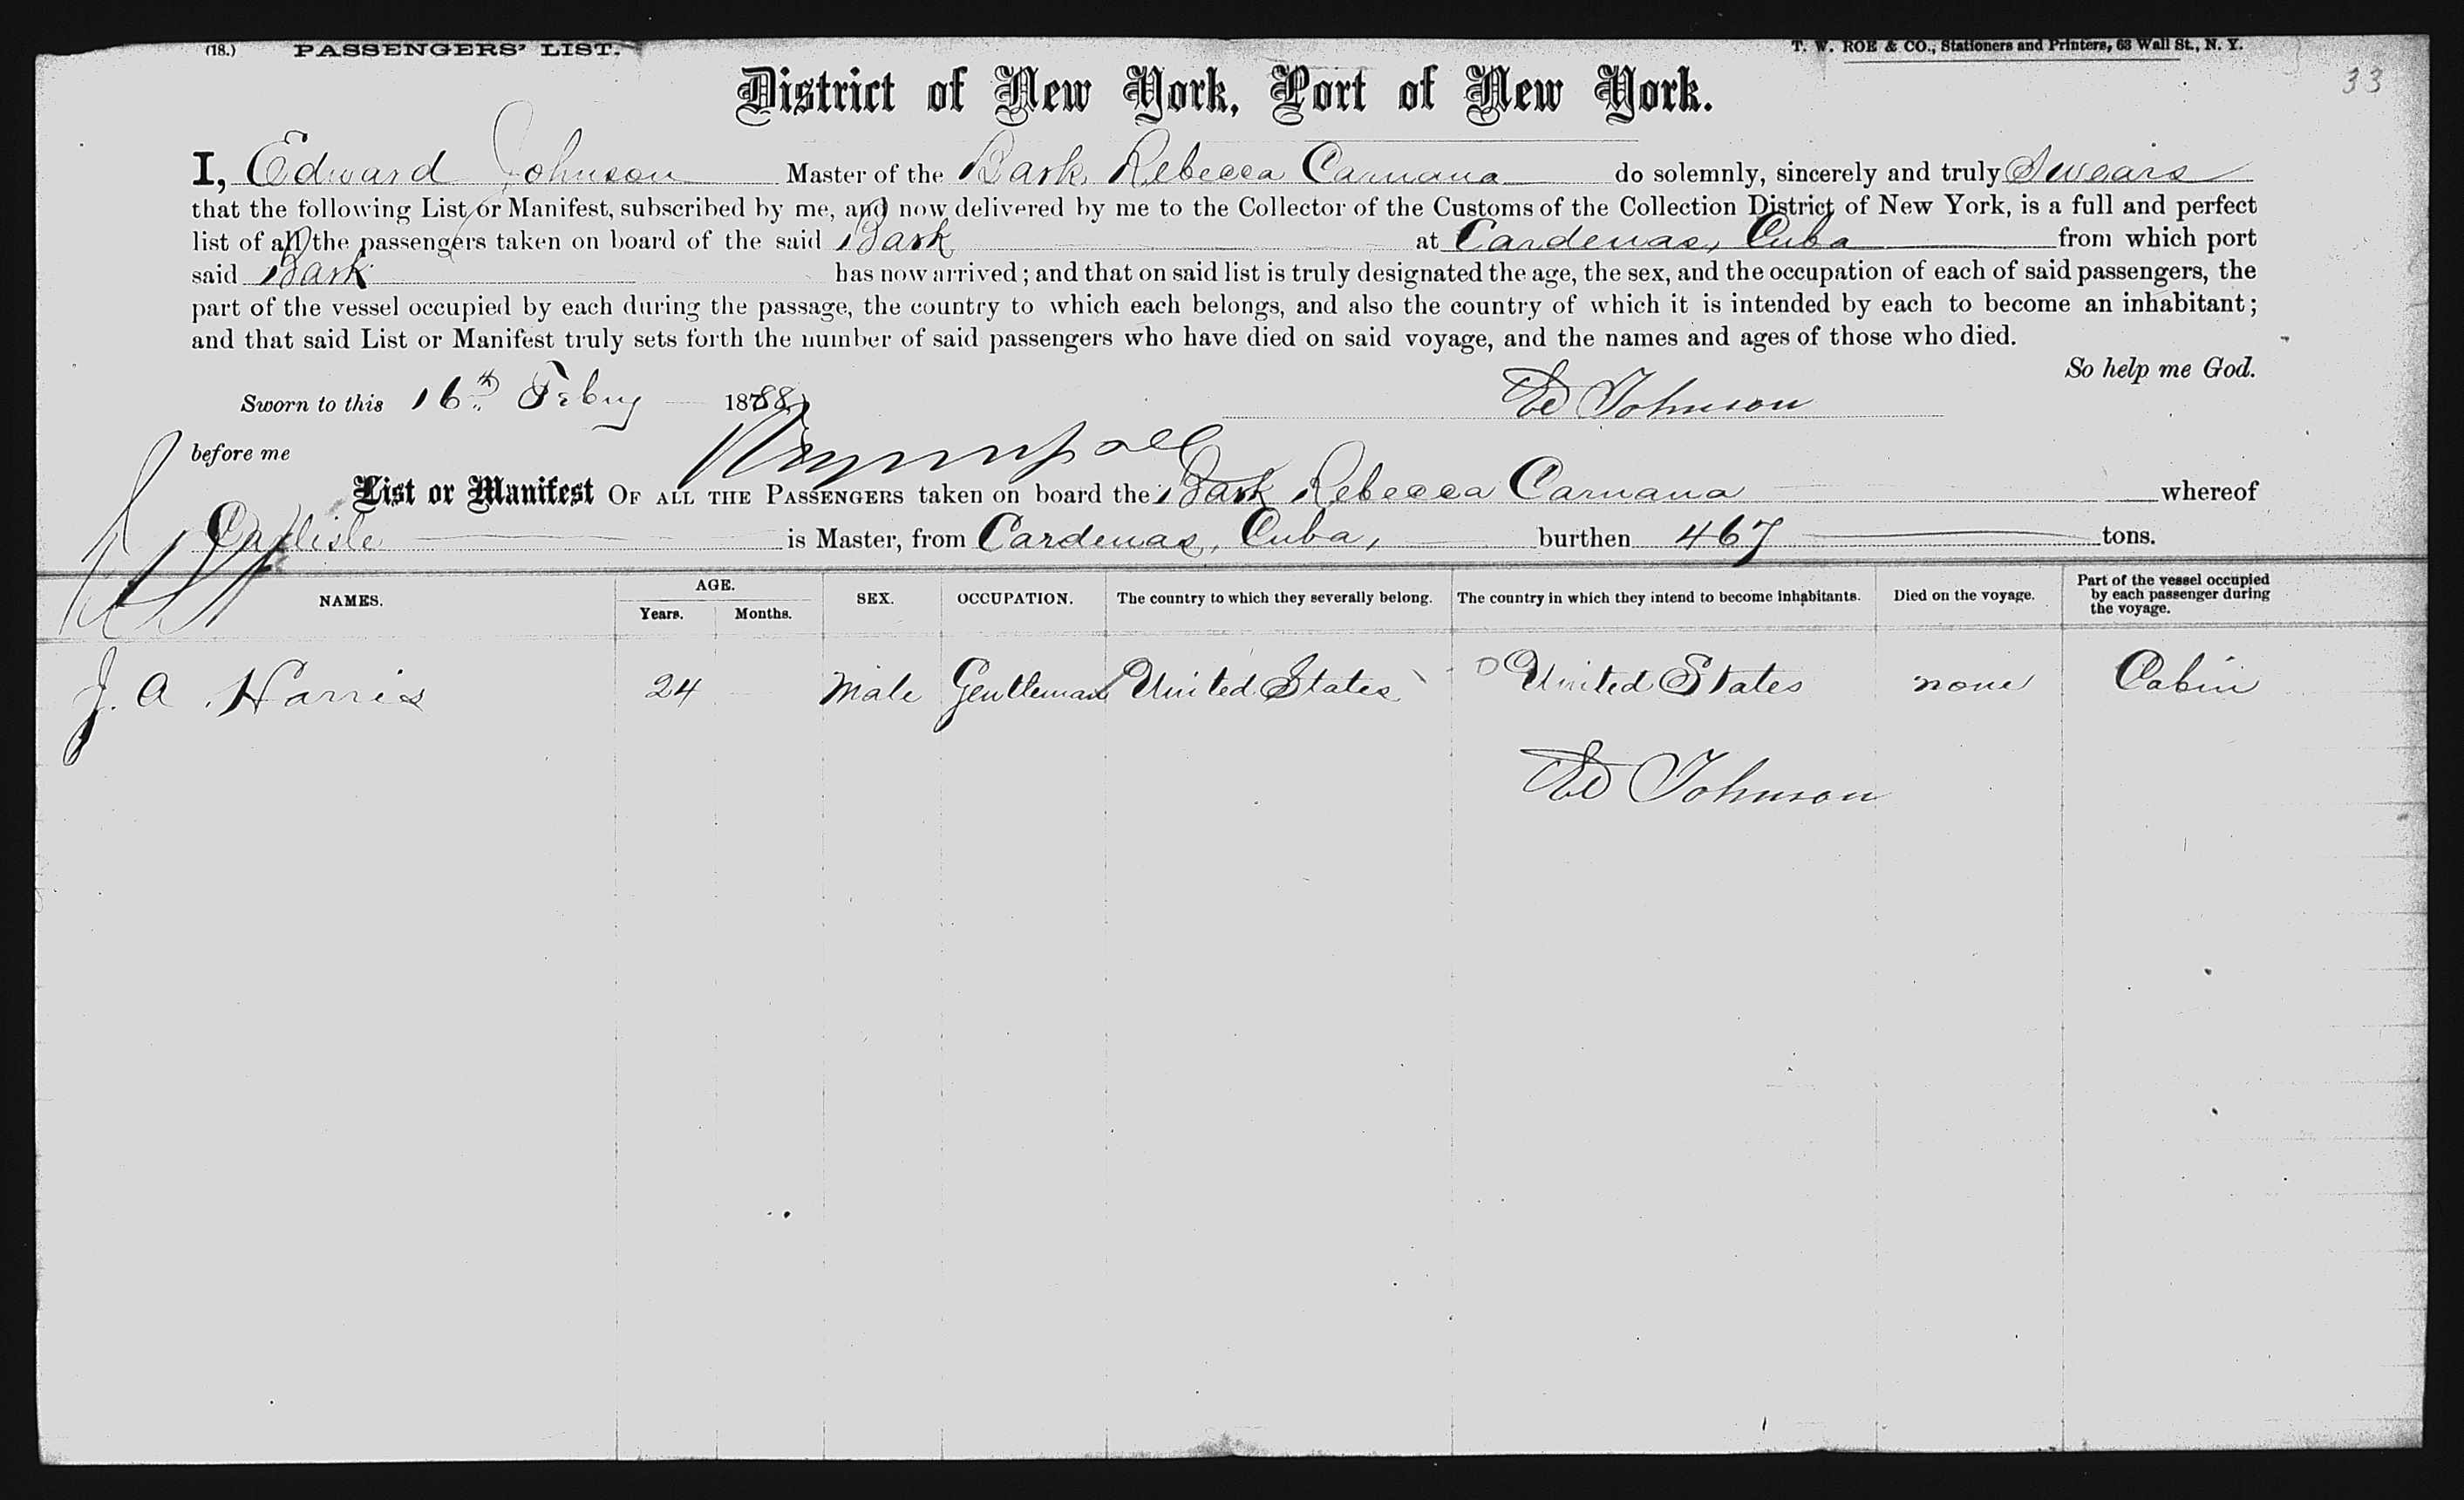 (18.) PASSENGERS' LIST.
T. W. ROE & CO., Stationers and Printers, 63 Wall St., N. Y.
33
District of New York, Port of New York.
I, Edward Johnson Master of the Bark Rebecca Caruana do solemnly, sincerely and truly Swears
that the following List or Manifest, subscribed by me, and now delivered by me to the Collector of the Customs of the Collection District of New York, is a full and perfect
list of all the passengers taken on board of the said Bark at Cardenas, Cuba from which port
said Bark has now arrived; and that on said list is truly designated the age, the sex, and the occupation of each of said passengers, the
part of the vessel occupied by each during the passage, the country to which each belongs, and also the country of which it is intended by each to become an inhabitant;
and that said List or Manifest truly sets forth the number of said passengers who have died on said voyage, and the names and ages of those who died.
So help me God.
Sworn to this 16th Febuy 1888 Ed Johnson
before me
List or Manifest OF ALL THE PASSENGERS taken on board the Bark Rebecca Caruana whereof
Carlisle is Master, from Cardenas, Cuba, burthen 467 tons.
NAMES. AGE. Years. Months. SEX. OCCUPATION. The country to which they severally belong. The country in which they intend to become inhabitants. Died on the voyage. Part of the vessel occupied by each passenger during the voyage.
J. A. Harris 24 Male Gentleman United States United States none Cabin
Ed Johnson